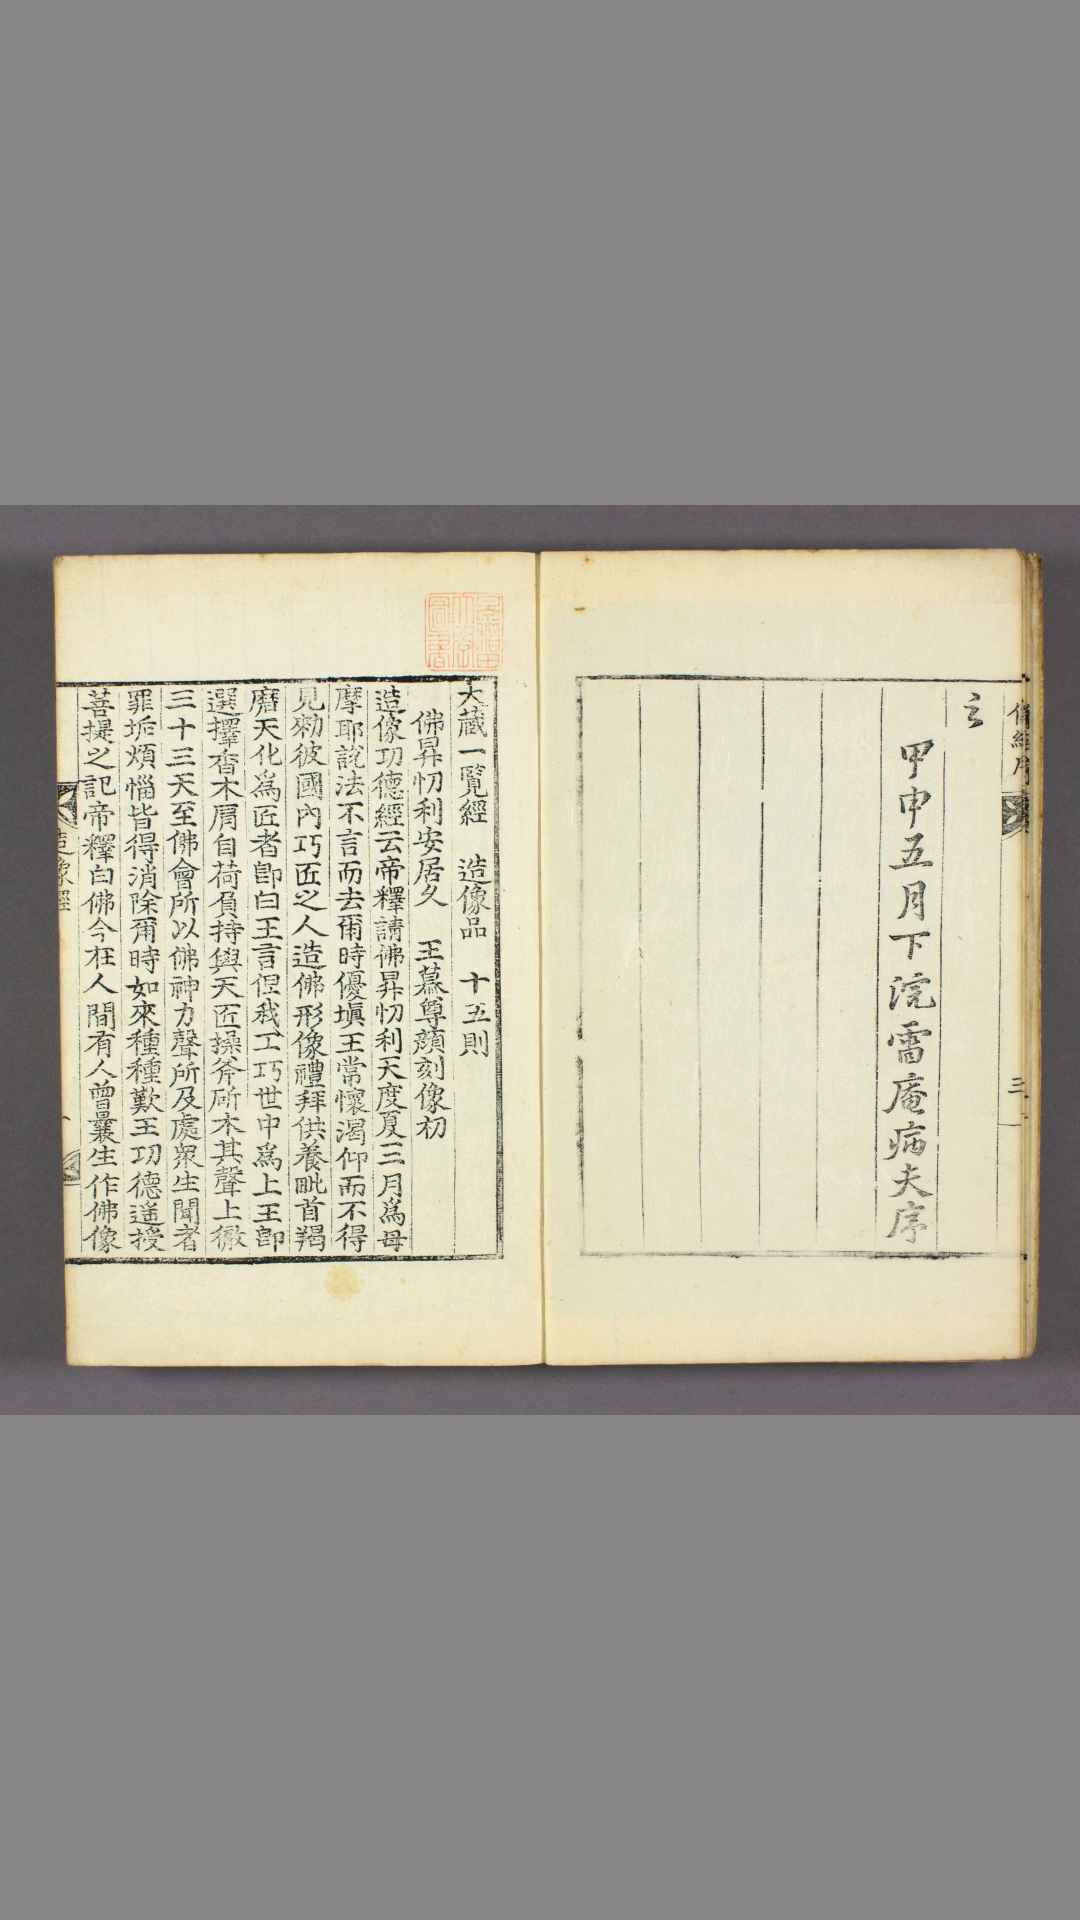 云
甲申五月下浣雷庵病夫序
三
大藏一覽經 造像品 十五則
佛昇忉利安居久 王慕尊顔刻像初
造像功德經云帝釋請佛昇忉利天度夏三月爲母
摩耶説法不言而去爾時優塡王常懷渴仰而不得
見勑彼國內巧匠之人造佛形像禮拜供養毗首羯
磨天化爲匠者卽白王言但我工巧世中爲上王卽
選擇香木肩自荷負持與天匠操斧斫木其聲上徹
三十三天至佛會所以佛神力聲所及處衆生聞者
罪垢煩惱皆得消除爾時如來種種歎王功德遙授
菩提之記帝釋白佛今在人間有人曾曩生作佛像
造像經